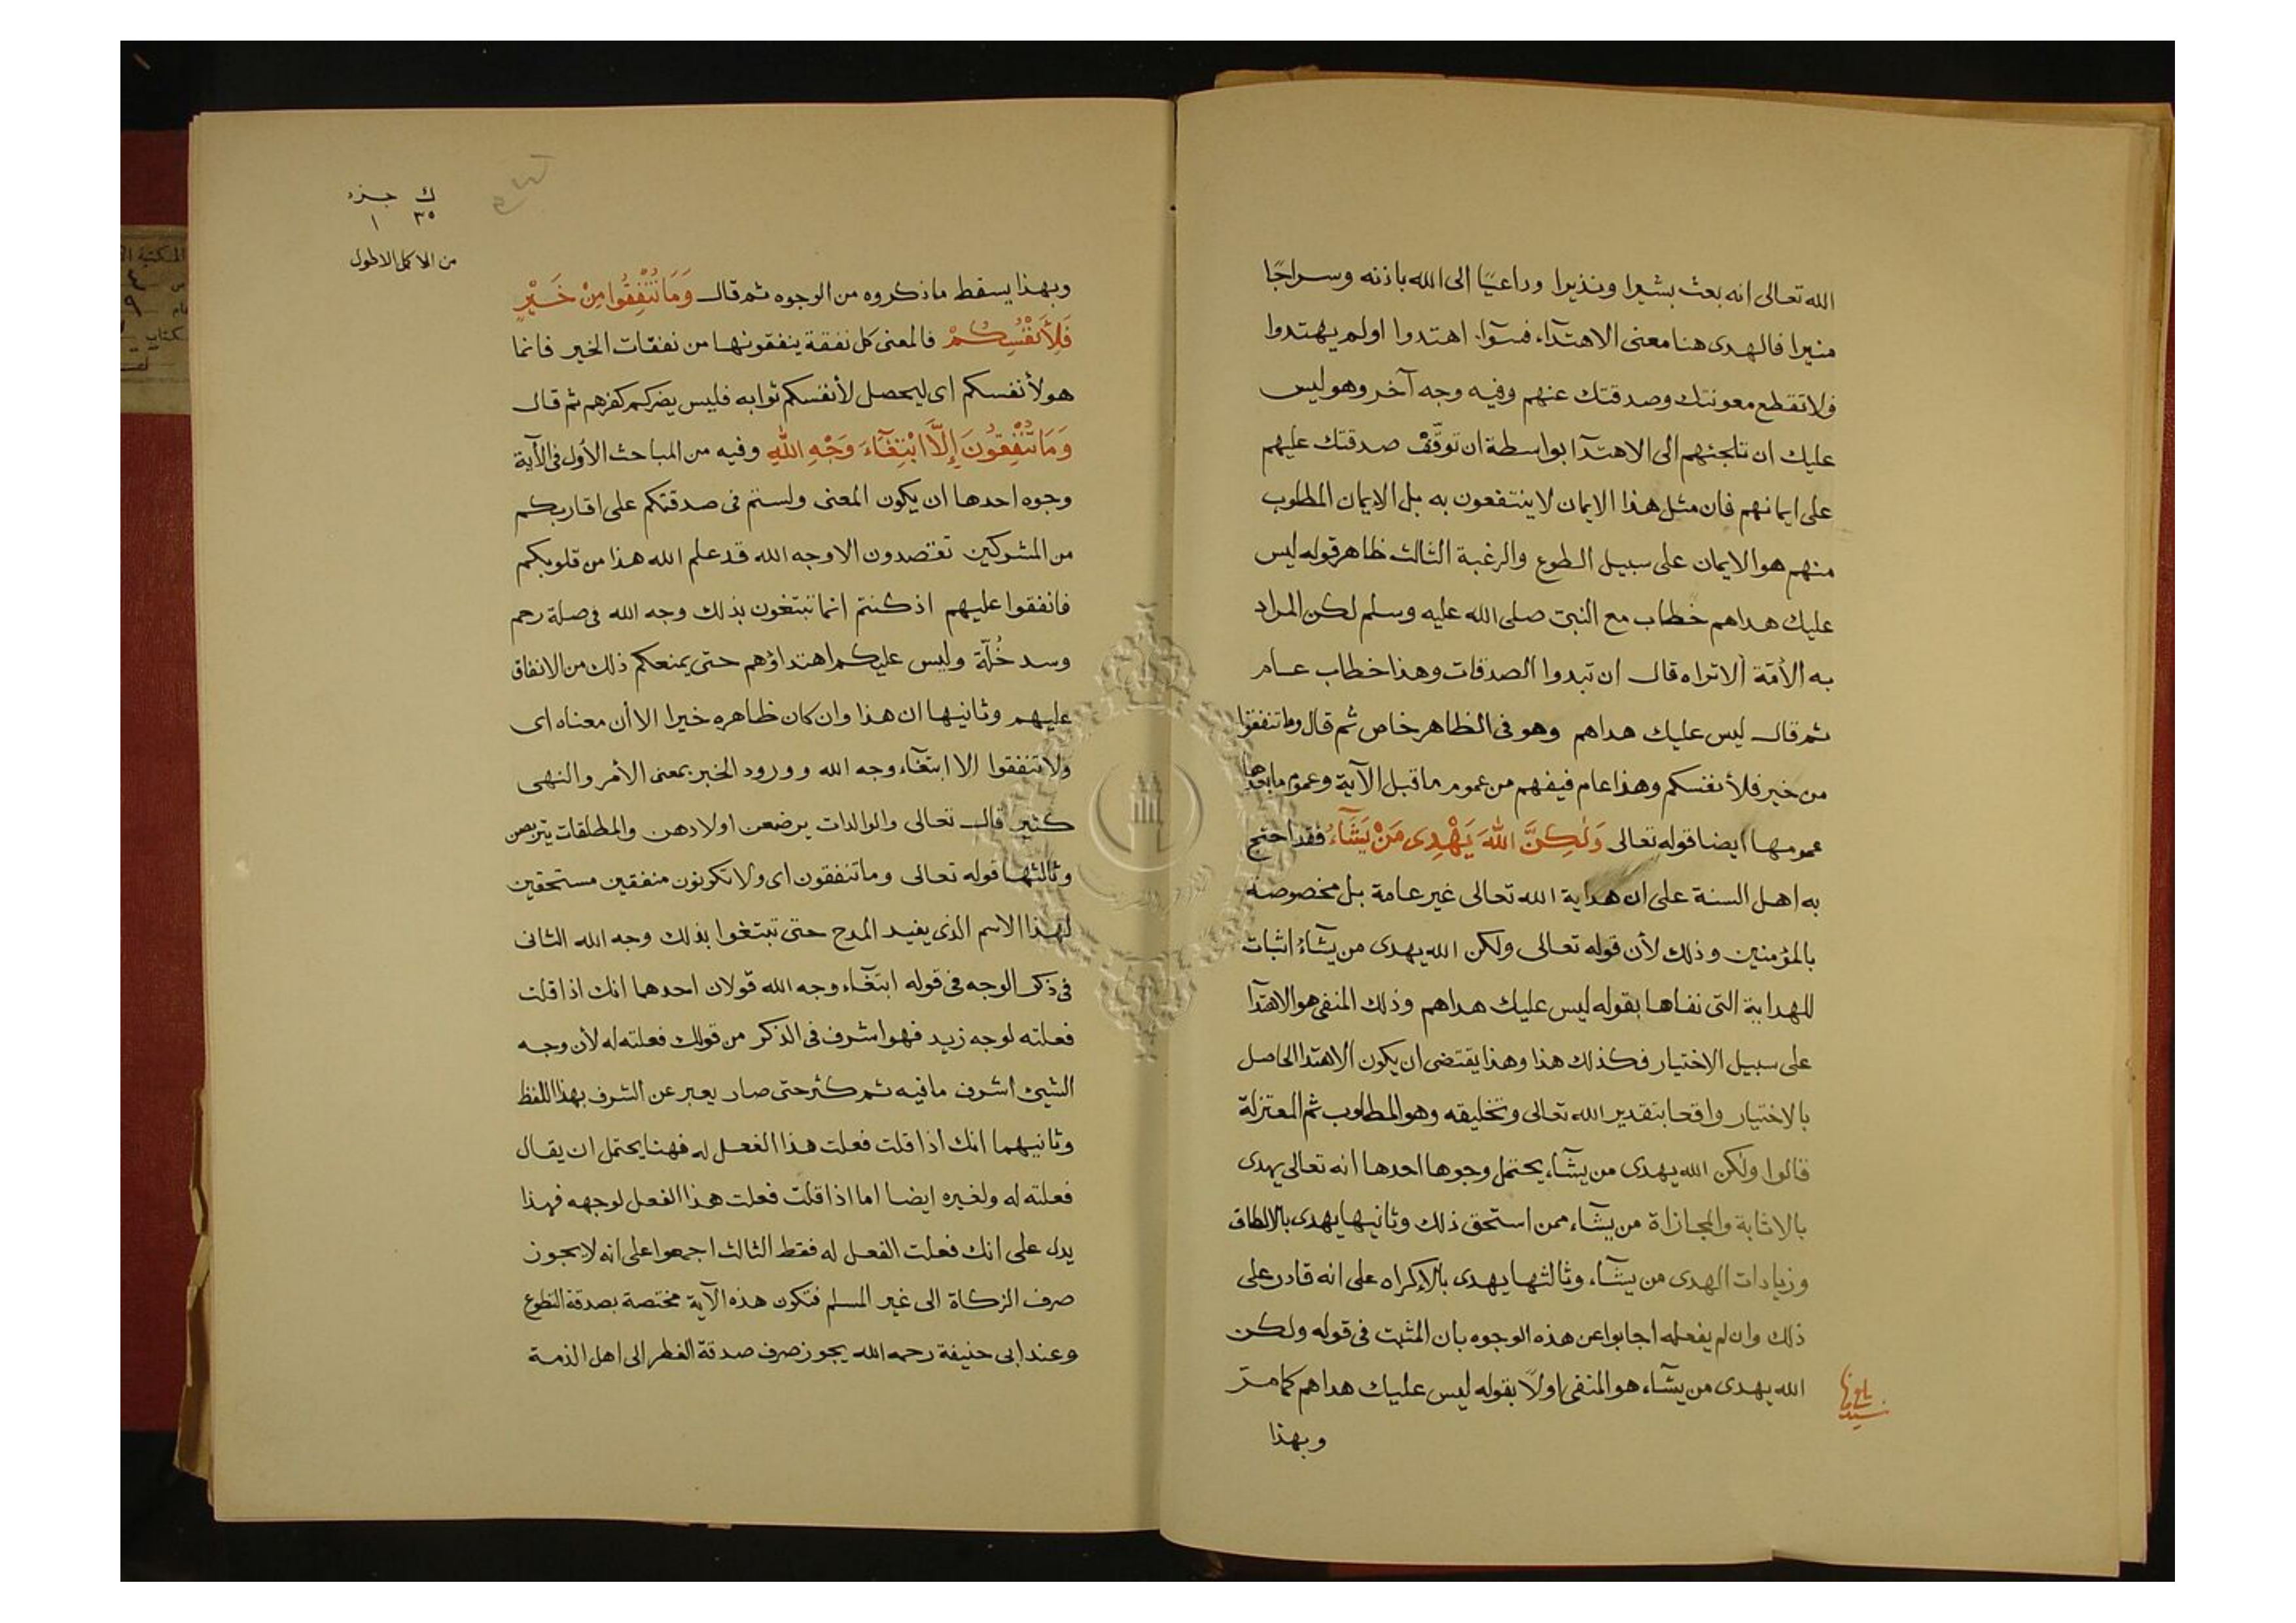 الله تعالى انه بعث بشيرا ونذيرا وداعيًا الى الله باذنه وسراجًا
منيرا فالهدى هنا معنى الاهتدآء فسوآء اهتدوا اولم يهتدوا
ولا تقطع معونتك وصدقتك عنهم وفيه وجه آخر وهو ليس
عليك ان تلجئهم الى الاهتدآ بواسطة ان توقّف صدقتك عليهم
على ايمانهم فان مثل هذا الايمان لا ينتفعون به بل الايمان المطلوب
منهم هو الايمان على سبيل الطوع والرغبة الثالث ظاهر قوله ليس
عليك هداهم خطاب مع النبى صلى الله عليه وسلم لكن المراد
به الأمّة ألا تراه قال ان تبدوا الصدقات وهذا خطاب عام
ثم قال ليس عليك هداهم وهو فى الظاهر خاص ثم قال وما تنفقوا
من خير فلأنفسكم وهذا عام فيفهم من عموم ما قبل الآية وعموم ما بعدها
عمومها ايضا قوله تعالى وَلَٰكِنَّ اللهَ يَهْدِى مَنْ يَشَآءُ فقد احتج
به اهل السنة على ان هداية الله تعالى غير عامة بل مخصوصة
بالمؤمنين وذلك لأن قوله تعالى ولكن الله يهدى من يشآءُ اثبات
للهداية التى نفاها بقوله ليس عليك هداهم وذلك المنفى هو الاهتدآ
على سبيل الاختيار فكذلك هذا وهذا يقتضى ان يكون الاهتدا الحاصل
بالاختيار واقعا بتقدير الله تعالى وتخليقه وهو المطلوب ثم المعتزلة
قالوا ولكن الله يهدى من يشآء يحتمل وجوها احدها انه تعالى يهدى
بالاثابة والمجازاة من يشآء ممن استحق ذلك وثانيها يهدى بالالطاف
وزيادات الهدى من يشآء وثالثها يهدى بالاكراه على انه قادر على
ذلك وان لم يفعله اجابوا عن هذه الوجوه بان المثبت فى قوله ولكن
الله يهدى من يشآء هو المنفى اولًا بقوله ليس عليك هداهم كما مرّ
وبهذا
ك جزء
٣٥ ١
من الاكمل الاطول
وبهذا يسقط ما ذكروه من الوجوه ثم قال وَمَا تُنْفِقُوا مِنْ خَيْرٍ
فَلِأَنْفُسِكُمْ فالمعنى كل نفقة ينفقونها من نفقات الخير فانما
هو لأنفسكم اى ليحصل لأنفسكم ثوابه فليس يضركم كفرهم ثم قال
وَمَا تُنْفِقُونَ إِلَّا ابْتِغَآءَ وَجْهِ اللهِ وفيه من المباحث الأول فى الآية
وجوه احدها ان يكون المعنى ولستم فى صدقتكم على اقاربكم
من المشركين تقصدون الا وجه الله قد علم الله هذا من قلوبكم
فانفقوا عليهم اذ كنتم انما تبتغون بذلك وجه الله فى صلة رحم
وسد خُلّة وليس عليكم اهتداؤهم حتى يمنعكم ذلك من الانفاق
عليهم وثانيها ان هذا وان كان ظاهره خيرا الا أن معناه اى
ولا تنفقوا الا ابتغآء وجه الله وورود الخبر بمعنى الأمر والنهى
كثير قال تعالى والوالدات يرضعن اولادهن والمطلقات يتربصن
وثالثها قوله تعالى وما تنفقون اى ولا تكونون منفقين مستحقين
لهذا الاسم الذى يفيد المدح حتى تبتغوا بذلك وجه الله الثانى
فى ذكر الوجه فى قوله ابتغآء وجه الله قولان احدهما انك اذا قلت
فعلته لوجه زيد فهو اشرف فى الذكر من قولك فعلته له لأن وجه
الشيئ اشرف ما فيه ثم كثر حتى صار يعبر عن الشرف بهذا اللفظ
وثانيهما انك اذا قلت فعلت هذا الفعل له فهنا يحتمل ان يقال
فعلته له ولغيره ايضا اما اذا قلت فعلت هذا الفعل لوجهه فهذا
يدل على انك فعلت الفعل له فقط الثالث اجمعوا على انه لا يجوز
صرف الزكاة الى غير المسلم فتكون هذه الآية مختصة بصدقة التطوع
وعند ابى حنيفة رحمه الله يجوز صرف صدقة الفطر الى اهل الذمة